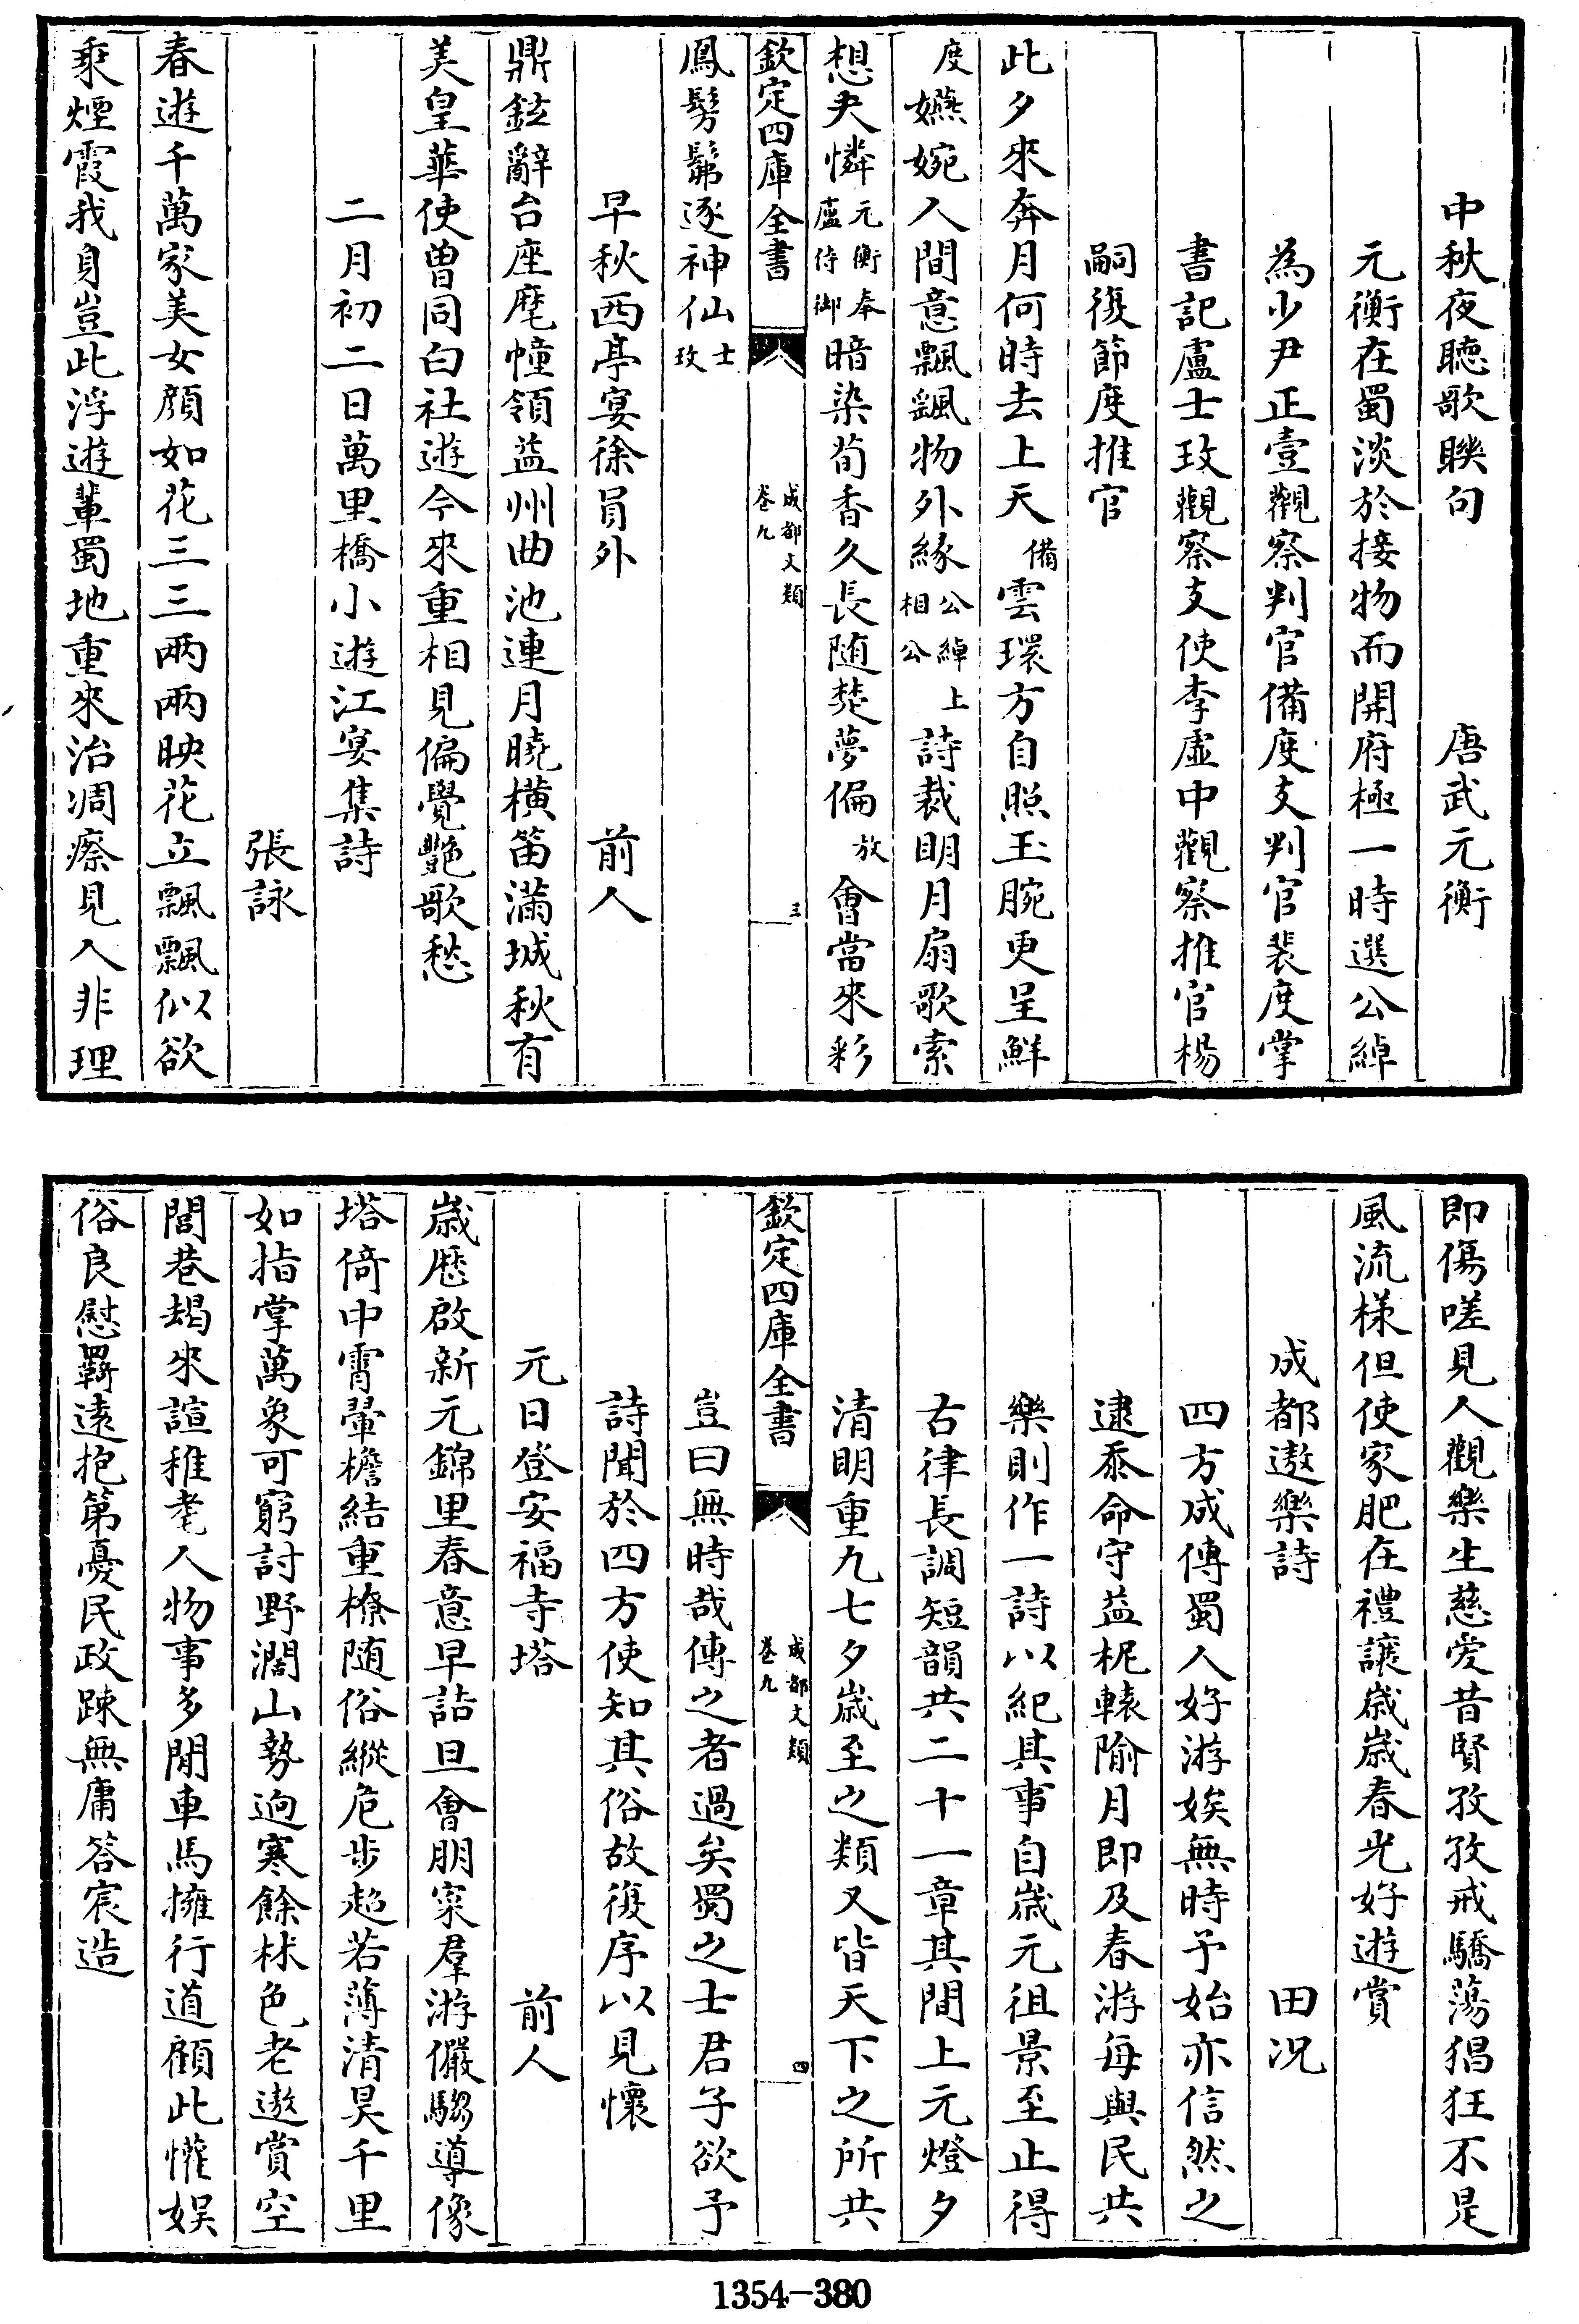 中秋夜聽歌聮句　唐武元衡
元衡在蜀淡於接物而開府極一時選公綽
為少尹正壹觀察判官備度支判官裴度掌
書記盧士玫觀察支使李虛中觀察推官楊
嗣復節度推官
此夕來奔月何時去上天備雲環方自照玉腕更呈鮮
度嬿婉人間意飄飖物外緣公綽上相公詩裁明月扇歌索
想夫憐元衡奉盧侍御暗染荀香久長随楚夢偏放會當來彩
欽定四庫全書　成都文類卷九　三
鳳髣髴逐神仙士玫
早秋西亭宴徐員外　前人
鼎鉉辭台座麾幢領益州曲池連月曉橫笛滿城秋有
美皇華使曾同白社遊今來重相見偏覺艷歌愁
二月初二日萬里橋小遊江宴集詩
張詠
春遊千萬家美女顔如花三三兩兩映花立飄飄似欲
乘煙霞我身豈此浮遊輩蜀地重來治凋瘵見人非理
即傷嗟見人觀樂生慈愛昔賢孜孜戒驕蕩猖狂不是
風流樣但使家肥在禮讓歲歲春光好遊賞
成都遨樂詩　田况
四方咸傳蜀人好游娭無時予始亦信然之
逮忝命守益柅轅隃月即及春游每與民共
樂則作一詩以紀其事自歲元徂景至止得
古律長調短韻共二十一章其間上元燈夕
清明重九七夕歲至之類又皆天下之所共
欽定四庫全書　成都文類卷九　四
豈曰無時哉傳之者過矣蜀之士君子欲予
詩聞於四方使知其俗故復序以見懷
元日登安福寺塔　前人
歲厯啟新元錦里春意早詰旦會朋寀羣游儼騶導像
塔倚中霄翬檐結重橑随俗縱危步超若薄清昊千里
如指掌萬象可窮討野濶山勢逈寒餘林色老遨賞空
閭巷朅來諠稚耄人物事多閒車馬擁行道顧此懽娱
俗良慰羇遠抱第憂民政踈無庸答宸造
1354—380